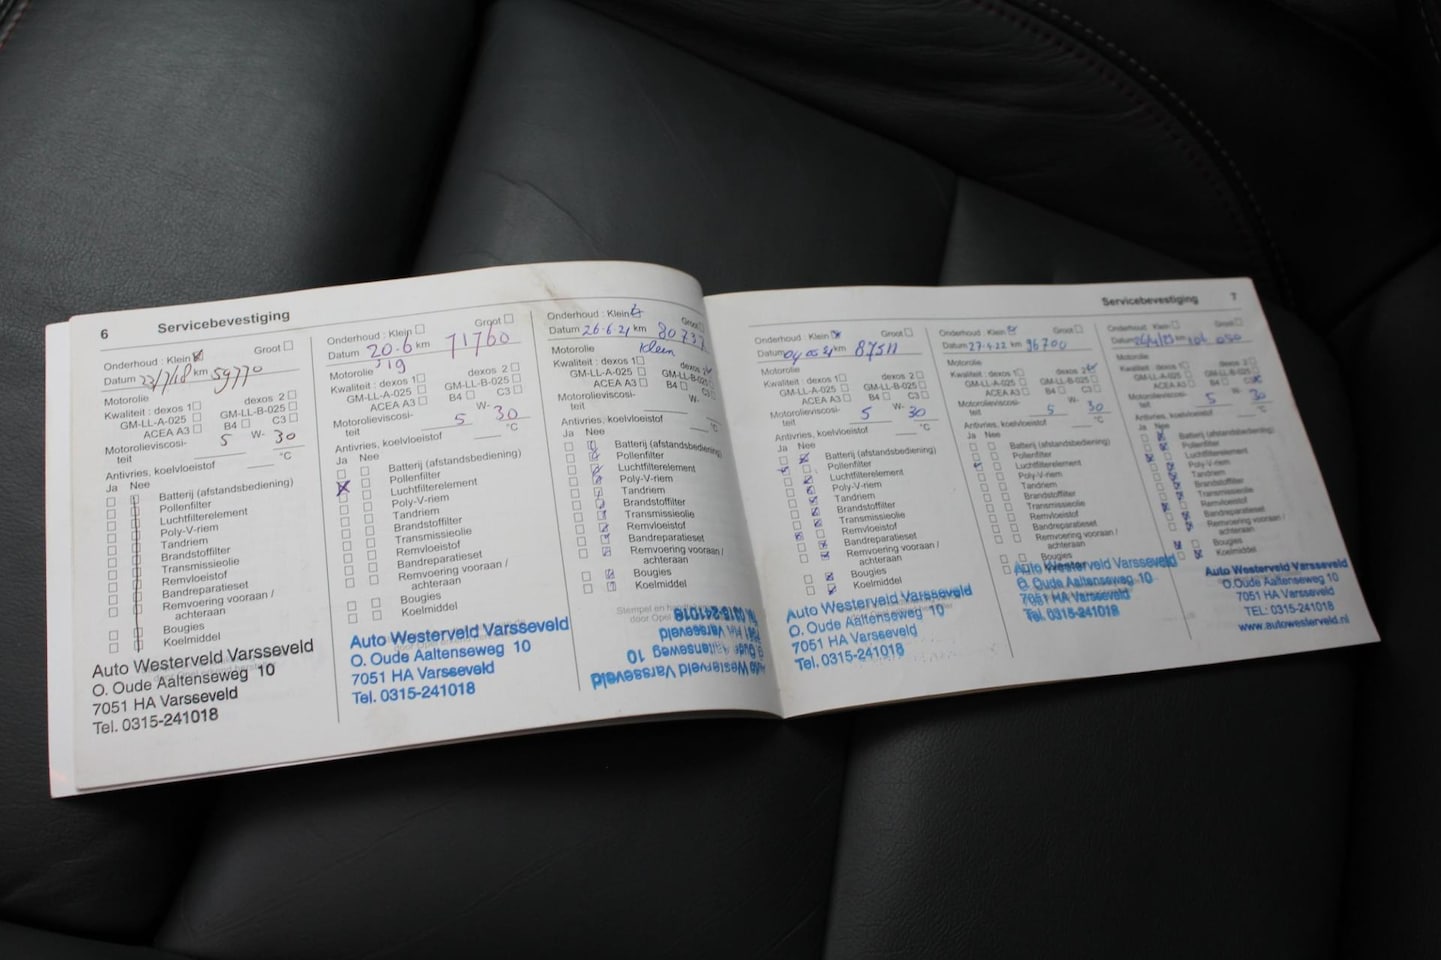 6 Servicebevestiging
Onderhoud : Klein Groot
Datum 23/7/18 km 59770
Motorolie
Kwaliteit : dexos 1 dexos 2
GM-LL-A-025 GM-LL-B-025
ACEA A3 B4 C3
Motorolieviscosi-
teit 5 W- 30
Antivries, koelvloeistof °C
Ja Nee
Batterij (afstandsbediening)
Pollenfilter
Luchtfilterelement
Poly-V-riem
Tandriem
Brandstoffilter
Transmissieolie
Remvloeistof
Bandreparatieset
Remvoering vooraan /
achteraan
Bougies
Koelmiddel
Auto Westerveld Varsseveld
O. Oude Aaltenseweg 10
7051 HA Varsseveld
Tel. 0315-241018
Onderhoud : Klein Groot
Datum 20-6 km 71760
Motorolie '19
Kwaliteit : dexos 1 dexos 2
GM-LL-A-025 GM-LL-B-025
ACEA A3 B4 C3
Motorolieviscosi-
teit 5 W- 30
Antivries, koelvloeistof °C
Ja Nee
Batterij (afstandsbediening)
Pollenfilter
Luchtfilterelement
Poly-V-riem
Tandriem
Brandstoffilter
Transmissieolie
Remvloeistof
Bandreparatieset
Remvoering vooraan /
achteraan
Bougies
Koelmiddel
Auto Westerveld Varsseveld
O. Oude Aaltenseweg 10
7051 HA Varsseveld
Tel. 0315-241018
Onderhoud : Klein Groot
Datum 26-6-21 km 80737
Motorolie Klein
Kwaliteit : dexos 1 dexos
GM-LL-A-025 GM-LL-B-025
ACEA A3 B4 C3
Motorolieviscosi-
teit W-
Antivries, koelvloeistof
Ja Nee
Batterij (afstandsbediening)
Pollenfilter
Luchtfilterelement
Poly-V-riem
Tandriem
Brandstoffilter
Transmissieolie
Remvloeistof
Bandreparatieset
Remvoering vooraan /
achteraan
Bougies
Koelmiddel
Stempel en
door Opel
Auto Westerveld Varsseveld
O. Oude Aaltenseweg 10
7051 HA Varsseveld
Tel. 0315-241018
Servicebevestiging 7
Onderhoud : Klein Groot
Datum km 87511
Motorolie
Kwaliteit : dexos 1 dexos 2
GM-LL-A-025 GM-LL-B-025
ACEA A3 B4 C3
Motorolieviscosi-
teit 5 W- 30
Antivries, koelvloeistof °C
Ja Nee
Batterij (afstandsbediening)
Pollenfilter
Luchtfilterelement
Poly-V-riem
Tandriem
Brandstoffilter
Transmissieolie
Remvloeistof
Bandreparatieset
Remvoering vooraan /
achteraan
Bougies
Koelmiddel
Auto Westerveld Varsseveld
O. Oude Aaltenseweg 10
7051 HA Varsseveld
Tel. 0315-241018
Onderhoud : Klein Groot
Datum 27-4-22 km 96700
Motorolie
Kwaliteit : dexos 1 dexos 2
GM-LL-A-025 GM-LL-B-025
ACEA A3 B4 C3
Motorolieviscosi-
teit 5 W- 30
Antivries, koelvloeistof °C
Ja Nee
Batterij (afstandsbediening)
Pollenfilter
Luchtfilterelement
Poly-V-riem
Tandriem
Brandstoffilter
Transmissieolie
Remvloeistof
Bandreparatieset
Remvoering vooraan /
achteraan
Bougies
Auto Westerveld Varsseveld
O. Oude Aaltenseweg 10
7051 HA Varsseveld
Tel. 0315-241018
Onderhoud : Klein Groot
Datum km
Motorolie
Kwaliteit : dexos 1 dexos 2
GM-LL-A-025 GM-LL-B-025
ACEA A3 B4 C3
Motorolieviscosi-
teit 5 W- 30
Antivries, koelvloeistof °C
Ja Nee
Batterij (afstandsbediening)
Pollenfilter
Luchtfilterelement
Poly-V-riem
Tandriem
Brandstoffilter
Transmissieolie
Remvloeistof
Bandreparatieset
Remvoering vooraan /
achteraan
Bougies
Koelmiddel
Auto Westerveld Varsseveld
O.Oude Aaltenseweg 10
7051 HA Varsseveld
TEL: 0315-241018
www.autowesterveld.nl